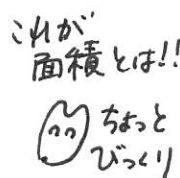 これが
面積とは!!
ちょっと
びっくり